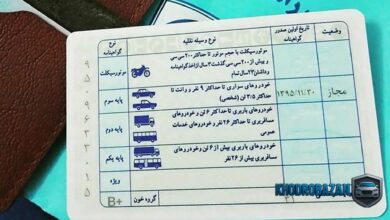 وضعیت
تاریخ اولین صدور گواهینامه
نوع وسیله نقلیه
نوع گواهینامه
موتورسیکلت با حجم موتور تا حداکثر ۲۰۰ سی سی
و بیش از ۲۰۰ سی سی گذشت ۲ سال از اخذ گواهینامه
و داشتن ۲۳ سال تمام
موتورسیکلت
مجاز
۱۳۹۵/۱۱/۳۰
خودروهای سواری تا حداکثر ۹ نفر و وانت تا
حداکثر ۳/۵ تن (شخصی)
پایه سوم
خودروهای باربری تا حداکثر ۶ تن و خودروهای
مسافربری تا حداکثر ۲۶ نفر و خودروهای خدمات
عمومی
پایه دوم
خودروهای باربری بیش از ۶ تن و خودروهای
مسافربری بیش از ۲۶ نفر
پایه یکم
ویژه
گروه خون
B+
KHODROBAZAN